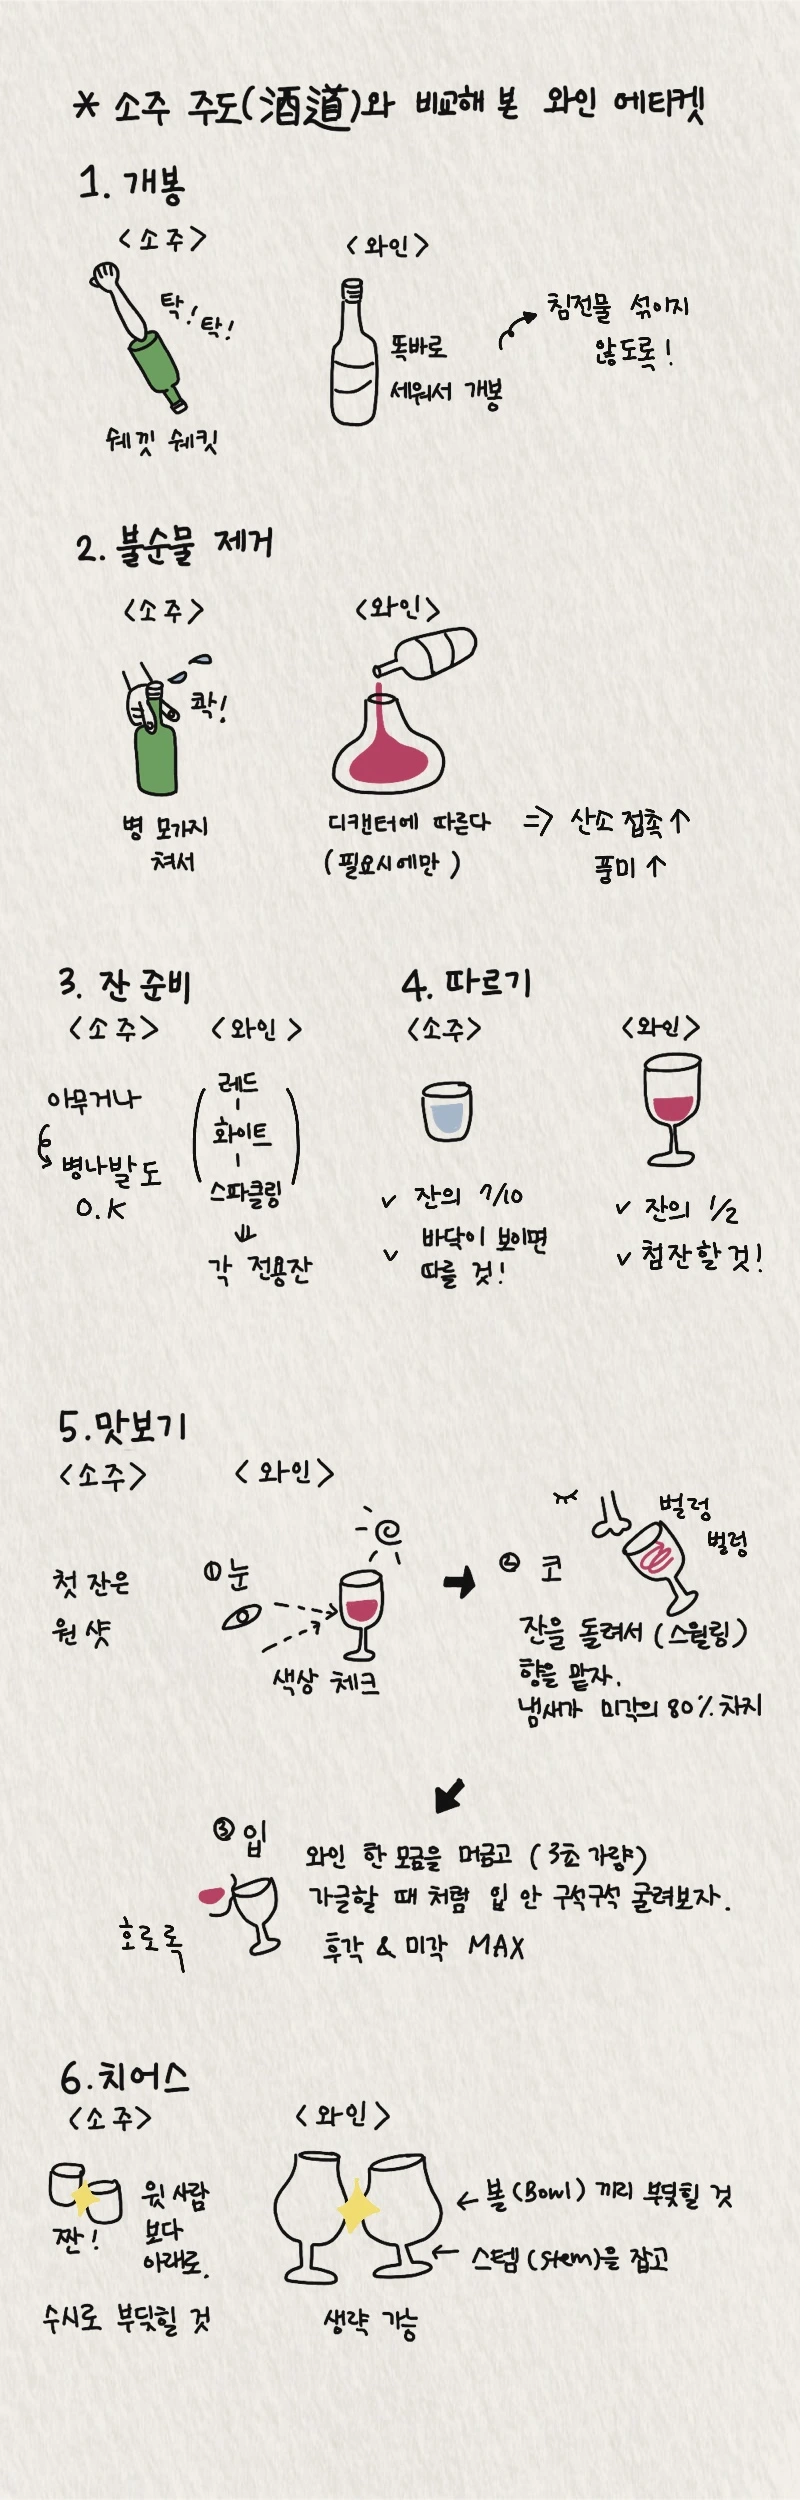 * 소주 주도(酒道)와 비교해 본 와인 에티켓
1. 개봉
<소주>
탁! 탁!
쉐낏 쉐킷
<와인>
똑바로
세워서 개봉
침전물 섞이지
않도록!
2. 불순물 제거
<소주>
콱!
병 모가지
쳐서
<와인>
디캔터에 따른다
(필요시에만)
=> 산소 접촉↑
풍미↑
3. 잔 준비
<소주>
아무거나
병나발도
O.K
<와인>
레드
화이트
스파클링
각 전용잔
4. 따르기
<소주>
✓ 잔의 7/10
✓ 바닥이 보이면
따를 것!
<와인>
✓ 잔의 1/2
✓ 첨잔할 것!
5. 맛보기
<소주>
첫 잔은
원 샷
<와인>
① 눈
색상 체크
② 코
벌렁
벌렁
잔을 돌려서 (스월링)
향을 맡자.
냄새가 미각의 80% 차지
③ 입
호로록
와인 한 모금을 머금고 (3초 가량)
가글할 때 처럼 입 안 구석구석 굴려보자.
후각 & 미각 MAX
6. 치어스
<소주>
짠!
윗 사람
보다
아래로.
수시로 부딪힐 것
<와인>
← 볼(Bowl) 끼리 부딪힐 것
← 스템(stem)을 잡고
생략 가능